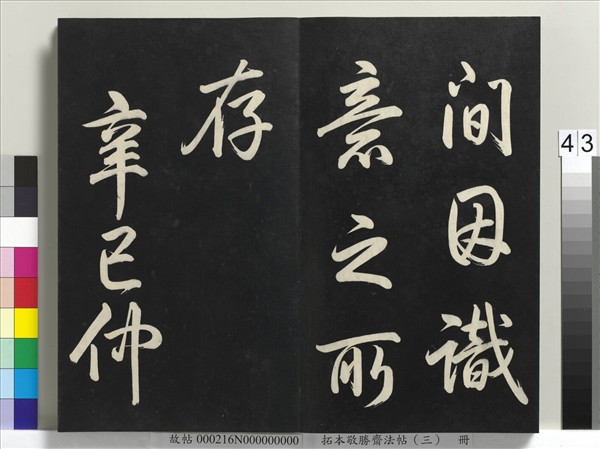 间因識
意之所
存
辛巳仲
43
故帖 000216N000000000 拓本敬勝齋法帖（三） 冊